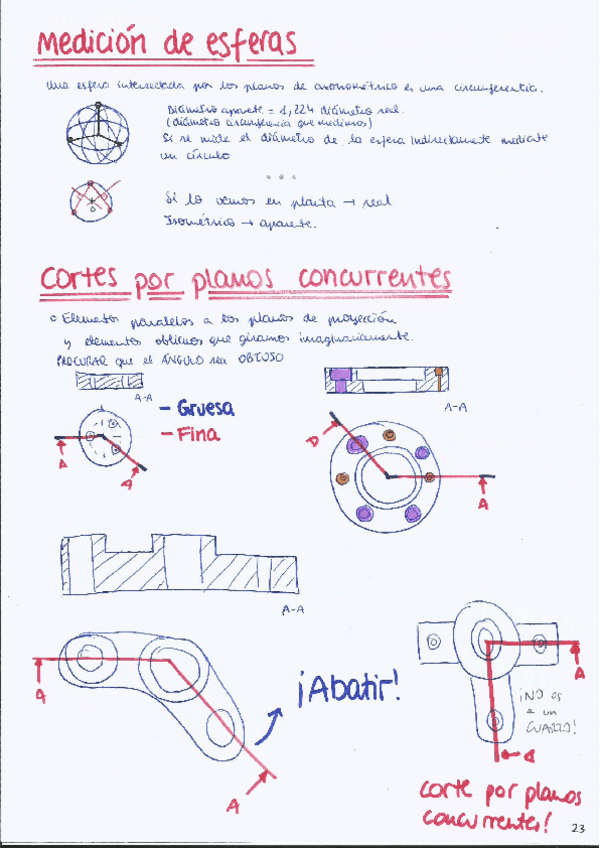 Medición de esferas
Una esfera intersectada por los planos de axonométrico es una circunferencia.
Diámetro aparente = 1,224 diámetro real.
(diámetro circunferencia que medimos)
Si se mide el diámetro de la esfera indirectamente mediante
un círculo
Si lo vemos en planta → real
Isométrico → aparente.
Cortes por planos concurrentes
Elementos paralelos a los planos de proyección
y elementos oblicuos que giramos imaginariamente.
PROCURAR que el ÁNGULO sea OBTUSO
A-A
- Gruesa
- Fina
A
A
A-A
A
A
A-A
A
A
¡Abatir!
A
¡NO es
un
CUARTO!
A
corte por planos
concurrentes!
23